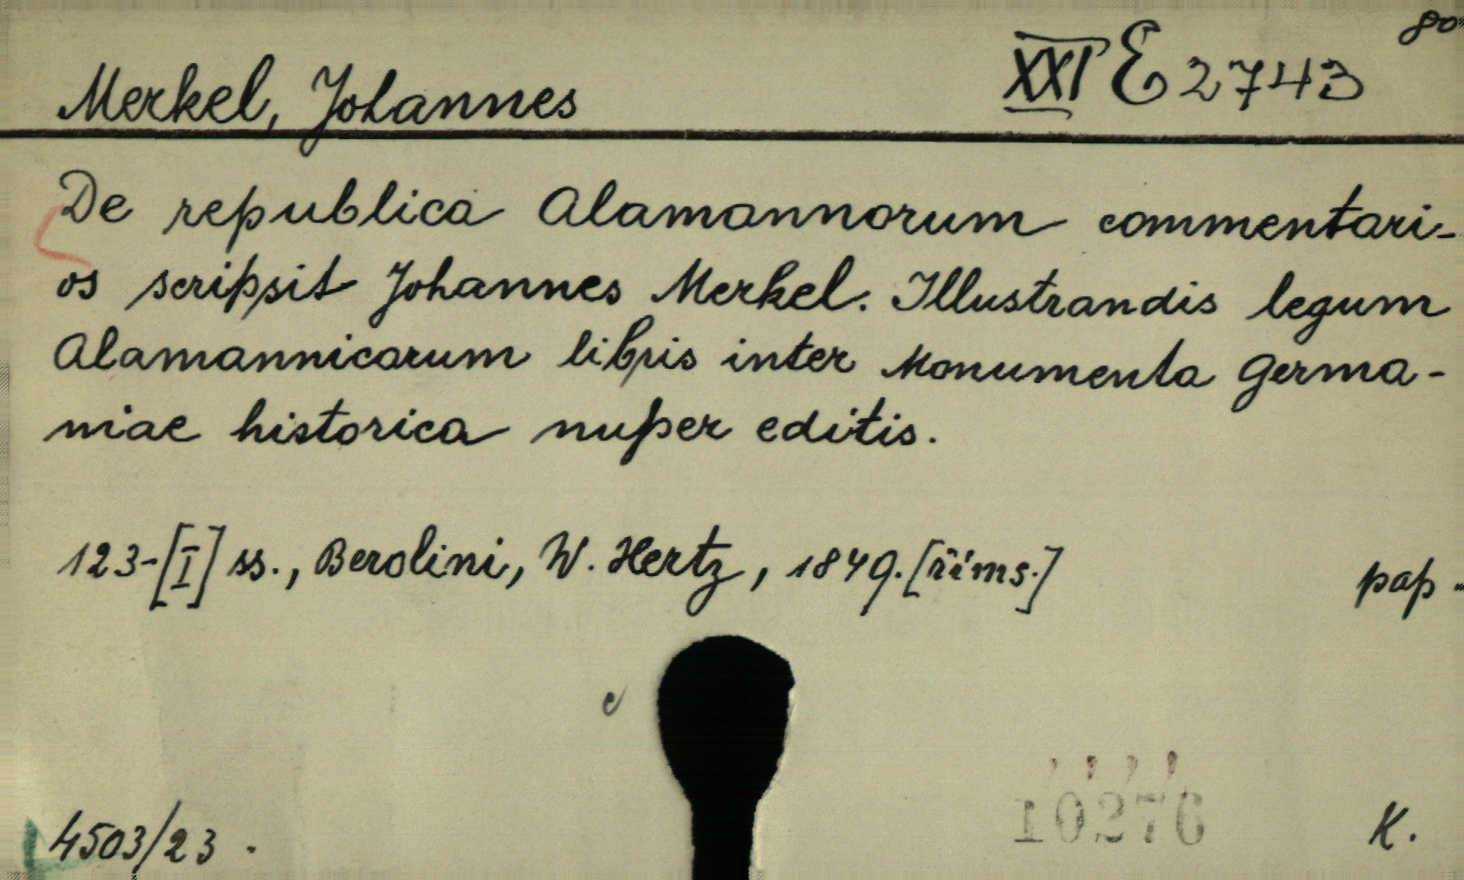 80
XXI E 2743
Merkel, Johannes
De republica Alamannorum commentari-
os scripsit Johannes Merkel. Illustrandis legum
Alamannicarum libris inter Monumenta Germa-
niae historica nuper editis.
123-[I] ss., Berolini, W. Hertz, 1849. [rims.]
pap.
e
10276
4503/23.
K.